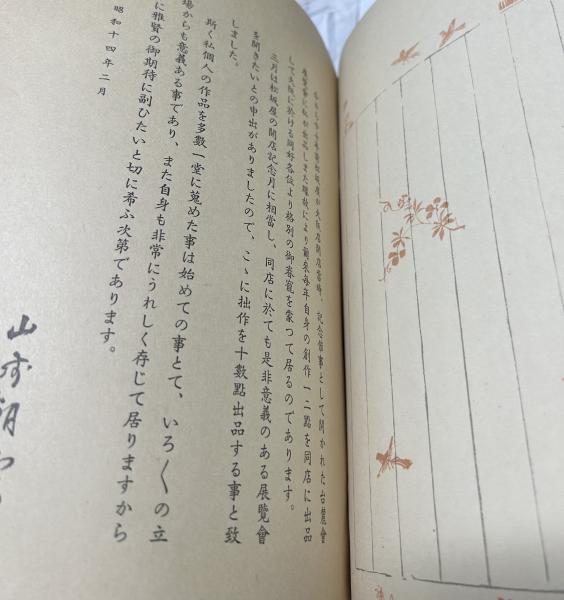 念催事として開かれた台麓會
して大阪に於ける同好各位より格別の御眷寵を蒙つて居るのであります。
三月は松坂屋の開店記念月に相當し、同店に於ても是非意義のある展覽會
を開きたいとの申出がありましたので、こゝに拙作を十數點出品する事と致
しました。
斯く私個人の作品を多數一堂に蒐めた事は始めての事とて、いろ〱の立
場からも意義ある事であり、また自身も非常にうれしく存じて居りますから
に雅賢の御期待に副ひたいと切に希ふ次第であります。
昭和十四年二月
山
朝